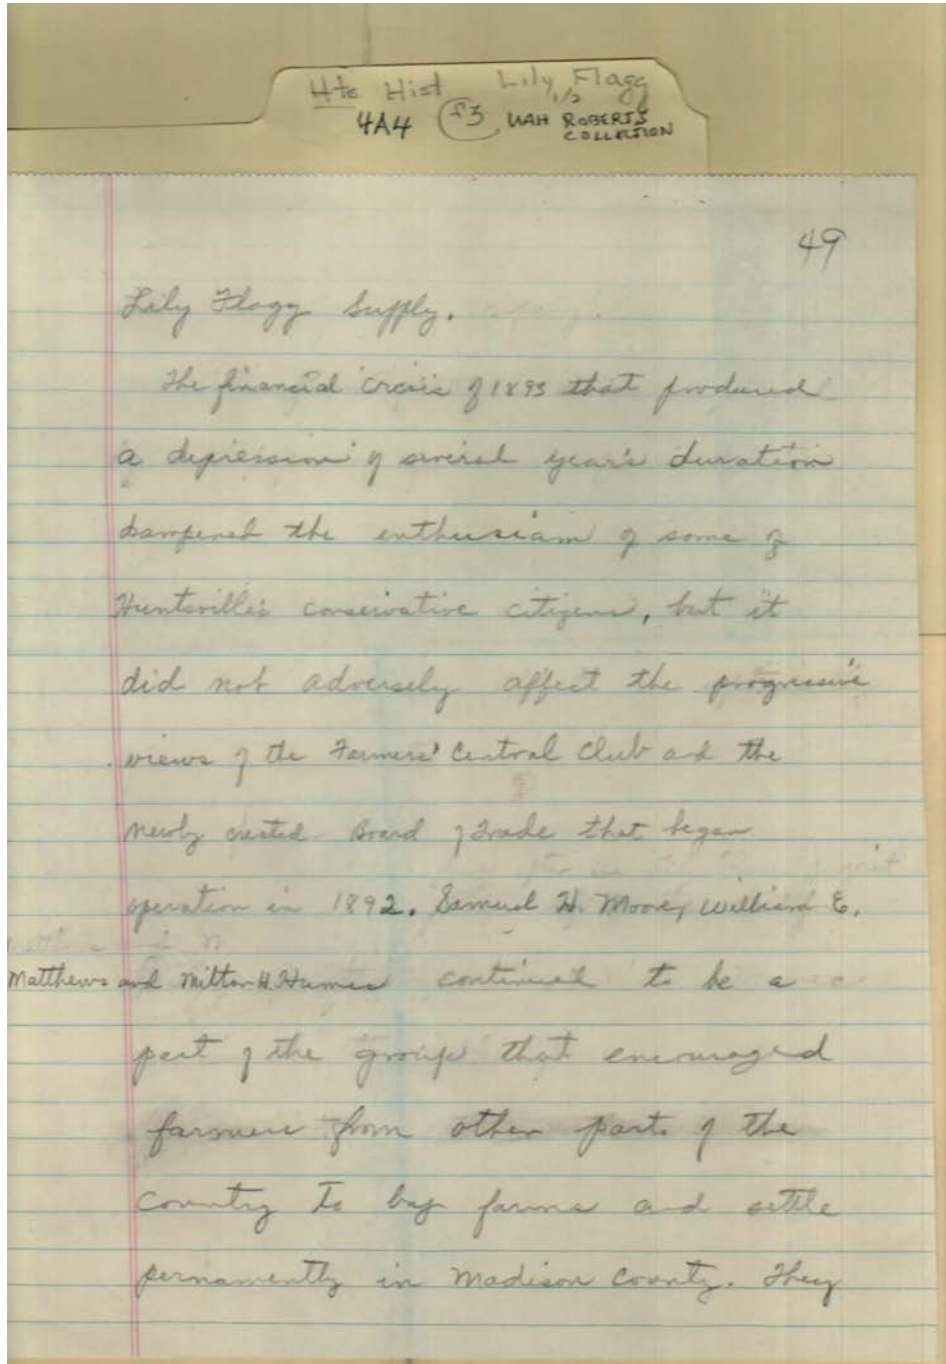 Hts Hist Lily Flagg
1/2
4A4 f3 UAH ROBERTS
COLLECTION
49
Lily Flagg Supply.
The financial crisis of 1893 that produced
a depression of several year's duration
dampened the enthusiasm of some of
Huntsville's conservative citizens, but it
did not adversely affect the progressive
views of the Farmers' Central Club and the
newly created Board of Trade that began
operation in 1892. Samuel H. Moore, William E.
Matthews and Milton H. Humes continued to be a
part of the group that encouraged
farmers from other parts of the
country to buy farms and settle
pernamently in Madison County. They